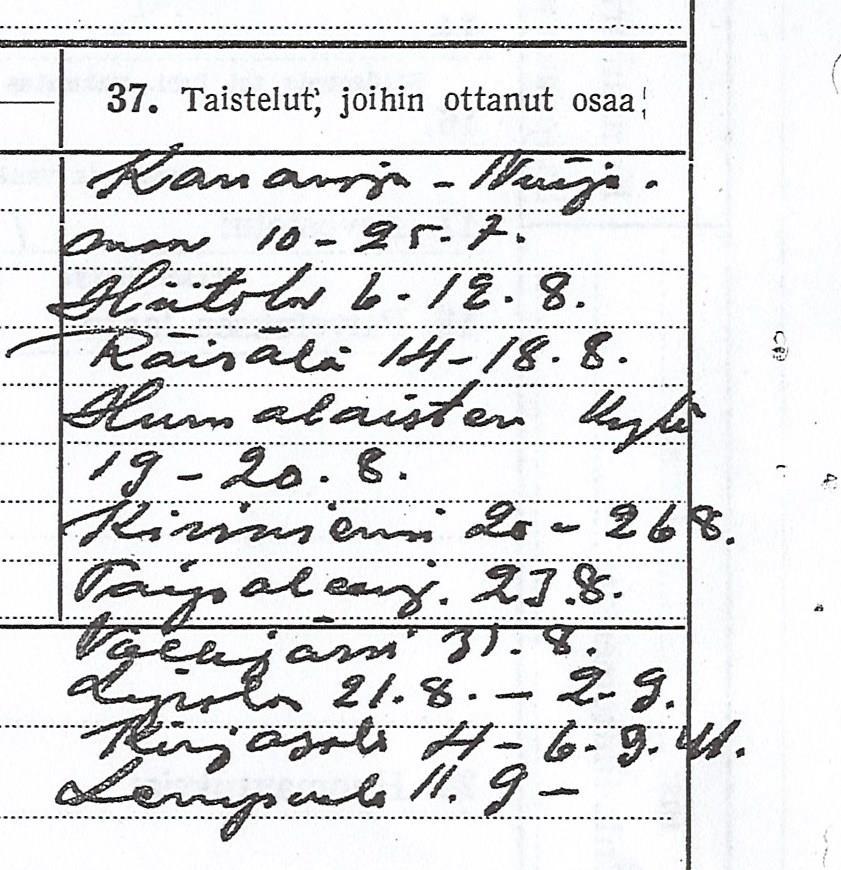 37. Taistelut, joihin ottanut osaa:
Kananoja - Nuija-
maa 10 - 25.7.
Hiitola 6 - 12.8.
Räisälä 14 - 18.8.
Humalaisten kylä
19 - 20.8.
Kiviniemi 20 - 26 8.
Taipaleenj. 27.8.
Valkjärvi 31.8.
Lipola 21.8. - 2.9.
Kirjasalo 4 - 6.9.41.
Lempaala 11.9 -